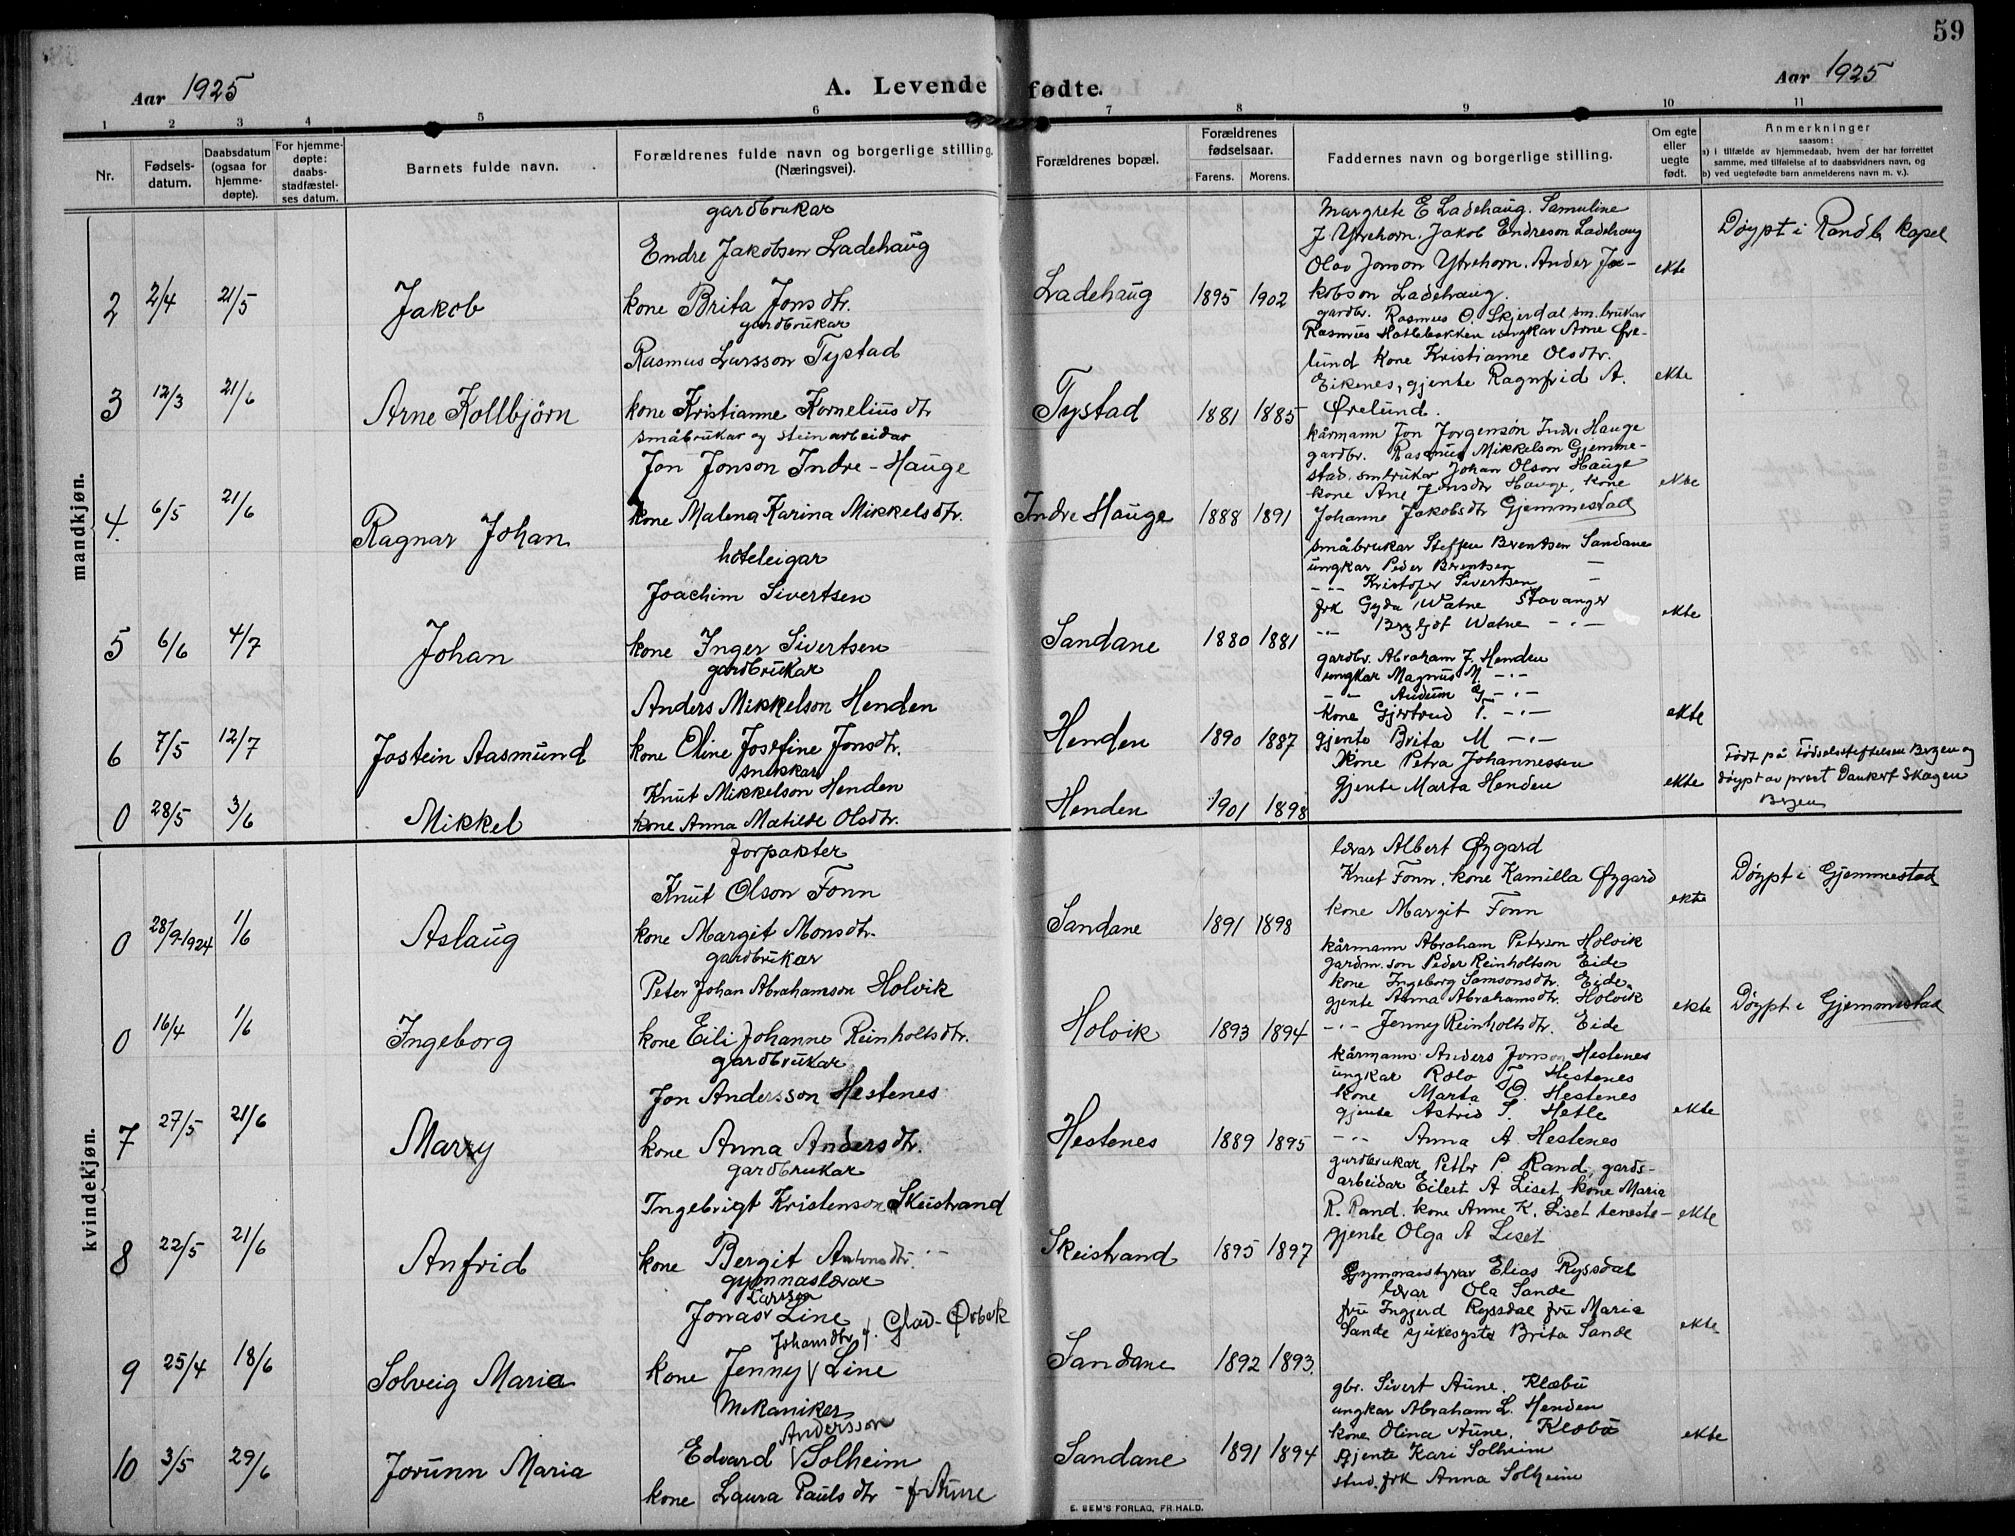 59
Aar 1925
A. Levende fødte.
Aar 1925
1 2 3 4 5 6 7 8 9 10 11
Nr.
Fødsels-datum.
Daabsdatum (ogsaa for hjemme-døpte).
For hjemme-døpte: daabs-stadfæstel-ses datum.
Barnets fulde navn.
Forældrenes fulde navn og borgerlige stilling. (Næringsvei).
Forældrenes bopæl.
Forældrenes fødselsaar.
Farens. Morens.
Faddernes navn og borgerlige stilling.
Om egte eller uegte født.
Anmerkninger
saasom:
a) i tilfælde av hjemmedaab, hvem der har forrettet samme, med tilføielse af to daabsvidners navn, og
b) ved uegtefødte barn anmelderens navn m. v.).
mandkjøn.
gardbrukar
Endre Jakobsen Ladehaug
2 2/4 21/5 Jakob kone Brita Jonsdtr. Ladehaug 1895 1902
Margrete E Ladehaug. Samuline
J Ytrehorn. Jakob Endreson Ladehaug
Olav Jonson Ytrehorn. Ander Ja-
kobson Ladehaug.
ekte
Døypt i Randb. kapel
gardbrukar
Rasmus Larsson Tystad
3 12/3 21/6 Arne Kollbjörn kone Kristianne Korneliusdtr Tystad 1881 1885
gardbr. Rasmus O. Skjerdal sm.brukar
Rasmus Hattebakken ungkar Arne Øre-
lund kone Kristianne Olsdtr.
Eikenes, gjente Ragnfrid A.
Ørelund.
ekte
småbrukar og steinarbeidar
Jon Jonson Indre-Hauge
4. 6/5 21/6 Ragnar Johan kone Malena Karina Mikkelsdtr. Indre Hauge 1888 1891
kårmann Jon Jorgensøn Indre Hauge
gardbr. Rasmus Mikkelson Gjemme-
stad. smbrukar Johan Olson Hauge
kone Ane Jonsdtr Hauge, kone
Johanne Jakobsdtr Gjemmestad
ekte
hoteleigar
Joachim Sivertsen
5 6/6 4/7 Johan kone Inger Sivertsen Sandane 1880 1881
småbrukar Steffen Brentsen Sandane
ungkar Peder Brentsen —
-"- Kristofer Sivertsen —
frk Gyda Watne Stavanger
-"- Bergljot Watne -"-
ekte
gardbrukar
Anders Mikkelson Henden
6 7/5 12/7 Jostein Aasmund kone Oline Josefine Jonsdtr. Henden 1890 1887
gardbr. Abraham J. Henden
ungkar Magnus M. -"-
- - Audun G -"-
kone Gjertrud T. -"-
gjente Brita M -"-
ekte
snikkar
Knut Mikkelson Henden
0 28/5 3/6 Mikkel kone Anna Matilde Olsdtr. Henden 1901 1898
kone Petra Johannessen
gjente Marta Henden
ekte
Født på Fødselsstiftelsen Bergen og
døypt av prest Dankert Skagen
Bergen
kvindekjøn.
forpakter
Knut Olson Fonn
0 28/9-1924 1/6 Aslaug kone Margit Monsdtr. Sandane 1891 1898
lærar Albert Øygard
Knut Fonn. kone Kamilla Øygard
kone Margit Fonn
ekte
Døypt i Gjemmestad
gardbrukar
Peter Johan Abrahamson Holvik
0 16/4 1/6 Ingeborg kone Eili Johanne Reinholtsdtr. Holvik 1893 1894
kårmann Abraham Peterson Holvik
gardm.son Peder Reinholtson Eide
kone Ingeborg Samsonsdtr. Eide.
gjente Anna Abrahamsdtr. Holvik
-"- Jenny Reinholtsdtr. Eide
ekte
Døypt i Gjemmestad
gardbrukar
Jon Andersson Hestenes
7 27/5 21/6 Marry kone Anna Andersdtr. Hestenes 1889 1895
kårmann Anders Jonson Hestenes
ungkar Rolv T Hestenes
kone Marta O. Hestenes
gjente Astrid S. Hetle
-"- Anna A. Hestenes
ekte
gardbrukar
Ingebrigt Kristenson Skeistrand
8 22/5 21/6 Anfrid kone Bergit Antonsdtr. Skeistrand 1895 1897
gardbrukar Petter P. Rand, gards-
arbeidar Eilert A Liset, kone Maria
R. Rand. kone Anne K. Liset teneste-
gjente Olga A Liset
ekte
gymnaslærar
Larsson
Jonas V Line
Johansdtr f. Glad-Ørbek
9 25/4 18/6 Solveig Maria kone Jenny V Line Sandane 1892 1893.
Gymnastyrar Elias Ryssdal
lærar Ola Sande
fru Ingjerd Ryssdal fru Maria
Sande sjukesyster Brita Sande
ekte
Mekaniker
Andersson
Edvard V Solheim
10 3/5 29/6 Jorunn Maria kone Laura Paulsdtr - f Aune Sandane 1891 1894
gbr. Sivert Aune. Klæbu
ungkar Abraham L. Henden
kone Olina Aune. Klæbu
gjente Kari Solheim
stud. frk Anna Solheim
ekte
E. SEM'S FORLAG, FR.HALD.